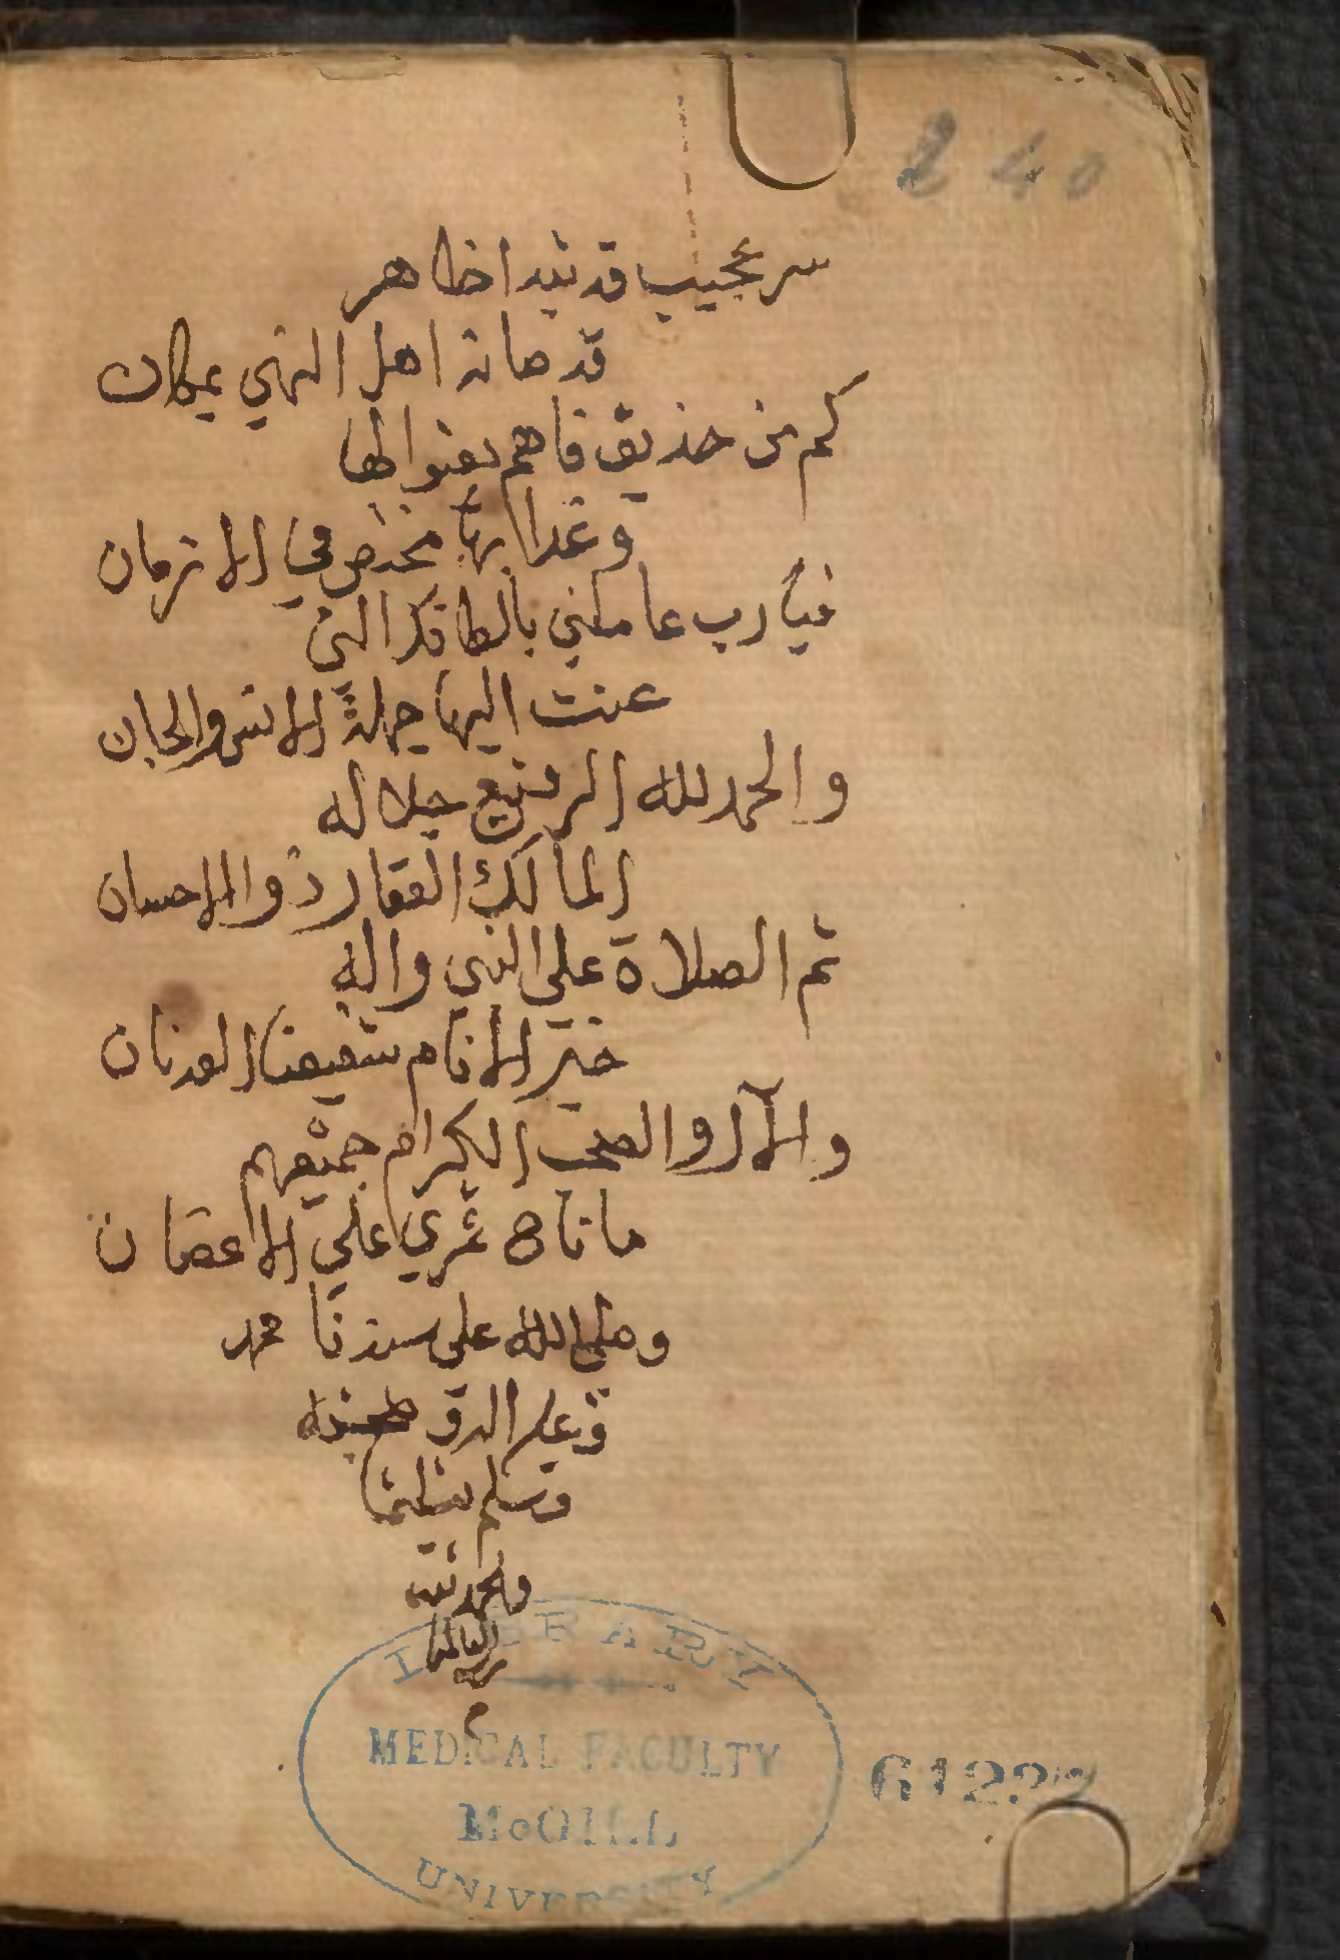 240
سر عجيب قد تبدا ظاهر
قد صانه اهل النهي بمكان
كم من حذيق فاهم يعنوا لها
وغدا بها مختص في الازمان
فيا رب عاملني بالطافك التي
عنت اليها جملة الانس والجان
والحمد لله الرفيع جلاله
المالك الغفار ذوا الاحسان
ثم الصلاة على النبي واله
خير الانام شفيعنا العدنان
والآل والصحب الكرام جميعهم
ما ناح قمري على الاغصان
وصلى الله على سيدنا محمد
وعلى اله وصحبه
وسلم تسليما
والحمد لله
رب العالمين
م
LIBRARY
MEDICAL FACULTY
McGILL
UNIVERSITY